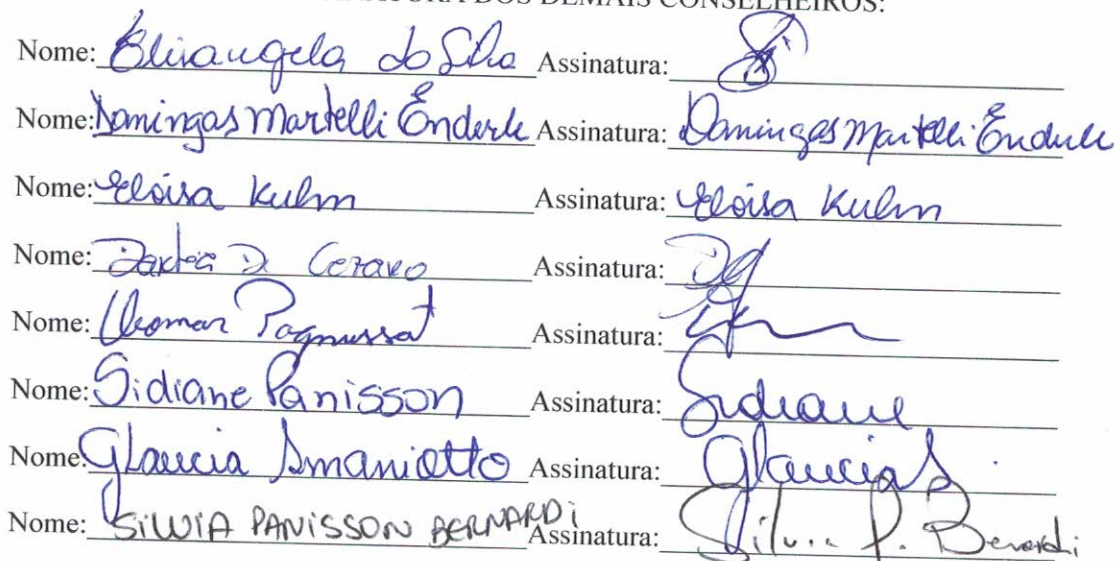 DOS DEMAIS CONSELHEIROS:
Nome: Elisangela da Silva Assinatura:
Nome: Domingas Martelli Enderle Assinatura: Domingas Martelli Enderle
Nome: Eloisa Kuhn Assinatura: Eloisa Kuhn
Nome: D. Cezaro Assinatura:
Nome: Pagnussat Assinatura:
Nome: Sidiane Panisson Assinatura: Sidiane
Nome: Glaucia Smaniotto Assinatura: Glaucia S.
Nome: SiLViA PANISSON BERNARDi Assinatura: Silvia P. Bernardi